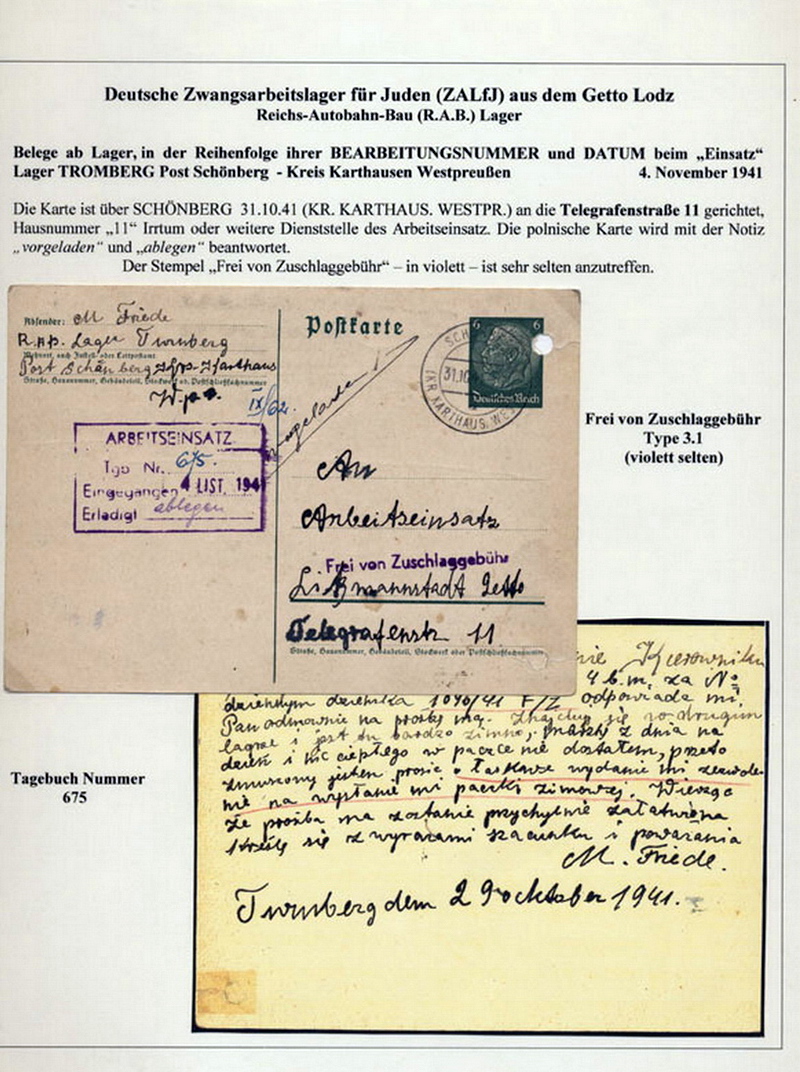 Deutsche Zwangsarbeitslager für Juden (ZALfJ) aus dem Getto Lodz
Reichs-Autobahn-Bau (R.A.B.) Lager
Belege ab Lager, in der Reihenfolge ihrer BEARBEITUNGSNUMMER und DATUM beim „Einsatz“
Lager TROMBERG Post Schönberg - Kreis Karthausen Westpreußen 4. November 1941
Die Karte ist über SCHÖNBERG 31.10.41 (KR. KARTHAUS. WESTPR.) an die Telegrafenstraße 11 gerichtet,
Hausnummer „11“ Irrtum oder weitere Dienststelle des Arbeitseinsatz. Die polnische Karte wird mit der Notiz
„vorgeladen“ und „ablegen“ beantwortet.
Der Stempel „Frei von Zuschlaggebühr“ – in violett – ist sehr selten anzutreffen.
Absender: M Friede
Lager Turmberg
Wohnort, auch Zustell- oder Leitpostamt
Post Schönberg
Straße, Hausnummer, Gebäudeteil, Stockwerk od. Postschließfachnummer
W.pr.
ARBEITSEINSATZ
Tgb Nr. 675.
Eingegangen 4 LIST. 194
Erledigt ablegen
Postkarte
SCH
31.10
(KR. KARTHAUS. WE
6 6
Deutsches Reich
vorgeladen
An
Arbeitseinsatz
Frei von Zuschlaggebühr
Litzmannstadt Getto
Telegrafenstr. 11
Straße, Hausnummer, Gebäudeteil, Stockwerk oder Postschließfachnummer
Frei von Zuschlaggebühr
Type 3.1
(violett selten)
Tagebuch Nummer
675
Kierowniku
4 b.m. za №
dziennika 1090/41 F/Z odpowiada mi
Pan odmownie na prośbę mą. Znajduję się w drugim
lagrze i jest tu bardzo zimno, marznę z dnia na
dzień i nic ciepłego w paczce nie dostałem, przeto
zmuszony jestem prosić o łaskawe wydanie mi zezwole-
nie na wysłanie mi paczki zimowej. Wierzę
że prośba ma zostanie przychylnie załatwiona
kreślę się z wyrazami szacunku i poważania
M. Friede.
Turmberg dem 29 oktober 1941.